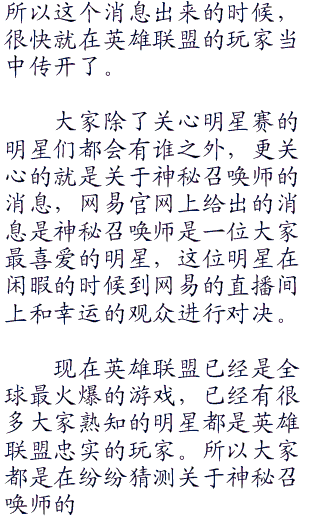 所以这个消息出来的时候，
很快就在英雄联盟的玩家当
中传开了。
大家除了关心明星赛的
明星们都会有谁之外，更关
心的就是关于神秘召唤师的
消息，网易官网上给出的消
息是神秘召唤师是一位大家
最喜爱的明星，这位明星在
闲暇的时候到网易的直播间
上和幸运的观众进行对决。
现在英雄联盟已经是全
球最火爆的游戏，已经有很
多大家熟知的明星都是英雄
联盟忠实的玩家。所以大家
都是在纷纷猜测关于神秘召
唤师的